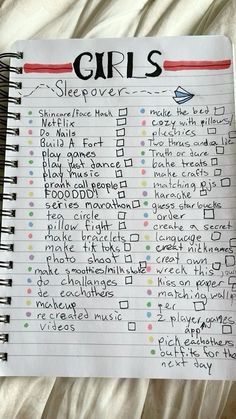 GIRLS
Sleepover
Skincare/Face Mask
Netflix
Do Nails
Build A Fort
play games
play just dance
play music
prank call people
FOOODDD!
series marathon
tea circle
pillow fight
make bracelets
make tik toks
photo shoot
make smoothies/milkshake
do challanges
do eachothers
makeup
recreated music
videos
make the bed
cozy with pillows/
plushies
Two thrus and a lie
Truth or dare
bake treats
make crafts
matching pjs
karaoke
guess starbucks
order
create a secret
language
creat nicknames
creat own
wreck this
kiss on paper
matching wallpa
per
2 player games
app
pick eachothers
outfits for the
next day